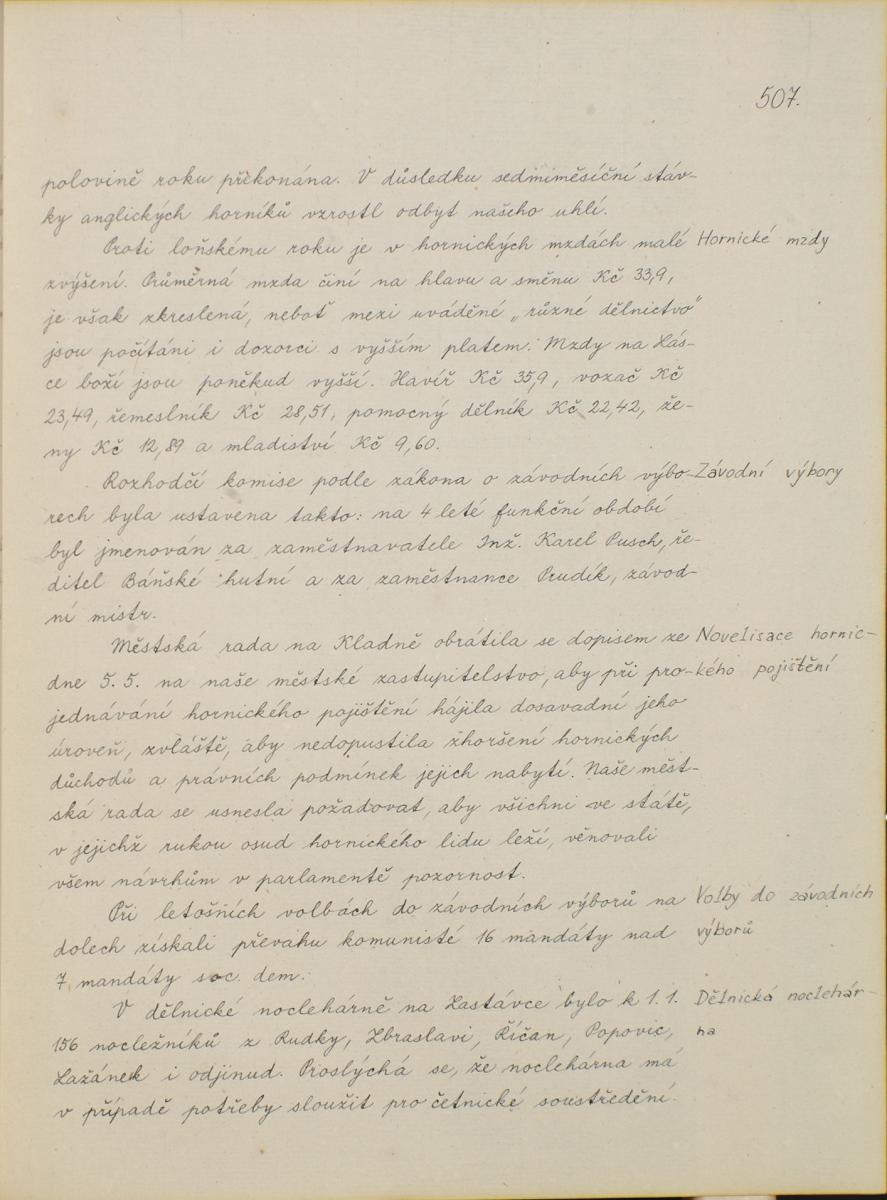 507.
polovině roku překonána. V důsledku sedmiměsíční stáv-
ky anglických horníků vzrostl odbyt našeho uhlí.
Proti loňskému roku je v hornických mzdách malé Hornické mzdy
zvýšení. Průměrná mzda činí na hlavu a směnu Kč 33,9,
je však zkreslená, neboť mezi uváděné „různé dělnictvo"
jsou počítáni i dozorci s vyšším platem. Mzdy na Lás-
ce boží jsou poněkud vyšší. Havíř Kč 35,9, vozač Kč
23,49, řemeslník Kč 28,51, pomocný dělník Kč 22,42, že-
ny Kč 12,89 a mladiství Kč 9,60.
Rozhodčí komise podle zákona o závodních výbo- Závodní výbory
rech byla ustavena takto: na 4 leté funkční období
byl jmenován za zaměstnavatele Inž. Karel Pusch, ře-
ditel Báňské hutní a za zaměstnance Prudík, závod-
ní mistr.
Městská rada na Kladně obrátila se dopisem ze Novelisace hornic-
dne 5. 5. na naše městské zastupitelstvo, aby při pro- kého pojištění
jednávání hornického pojištění hájila dosavadní jeho
úroveň, zvláště, aby nedopustila zhoršení hornických
důchodů a právních podmínek jejich nabytí. Naše měst-
ská rada se usnesla požadovat, aby všichni ve státě,
v jejichž rukou osud hornického lidu leží, věnovali
všem návrhům v parlamentě pozornost.
Při letošních volbách do závodních výborů na Volby do závodních
dolech získali převahu komunisté 16 mandáty nad výborů
7 mandáty soc. dem.
V dělnické noclehárně na Zastávce bylo k 1. 1. Dělnická noclehár-
156 nocležníků z Rudky, Zbraslavi, Říčan, Popovic, na
Lažánek i odjinud. Proslýchá se, že noclehárna má
v případě potřeby sloužit pro četnické soustředění.